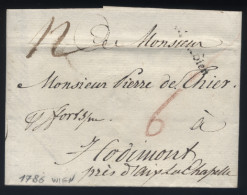 12 de Monsieur
Monsieur Pierre de Thier
à
6
Hodimont
près d'Aix La Chapelle
1786 WIEN